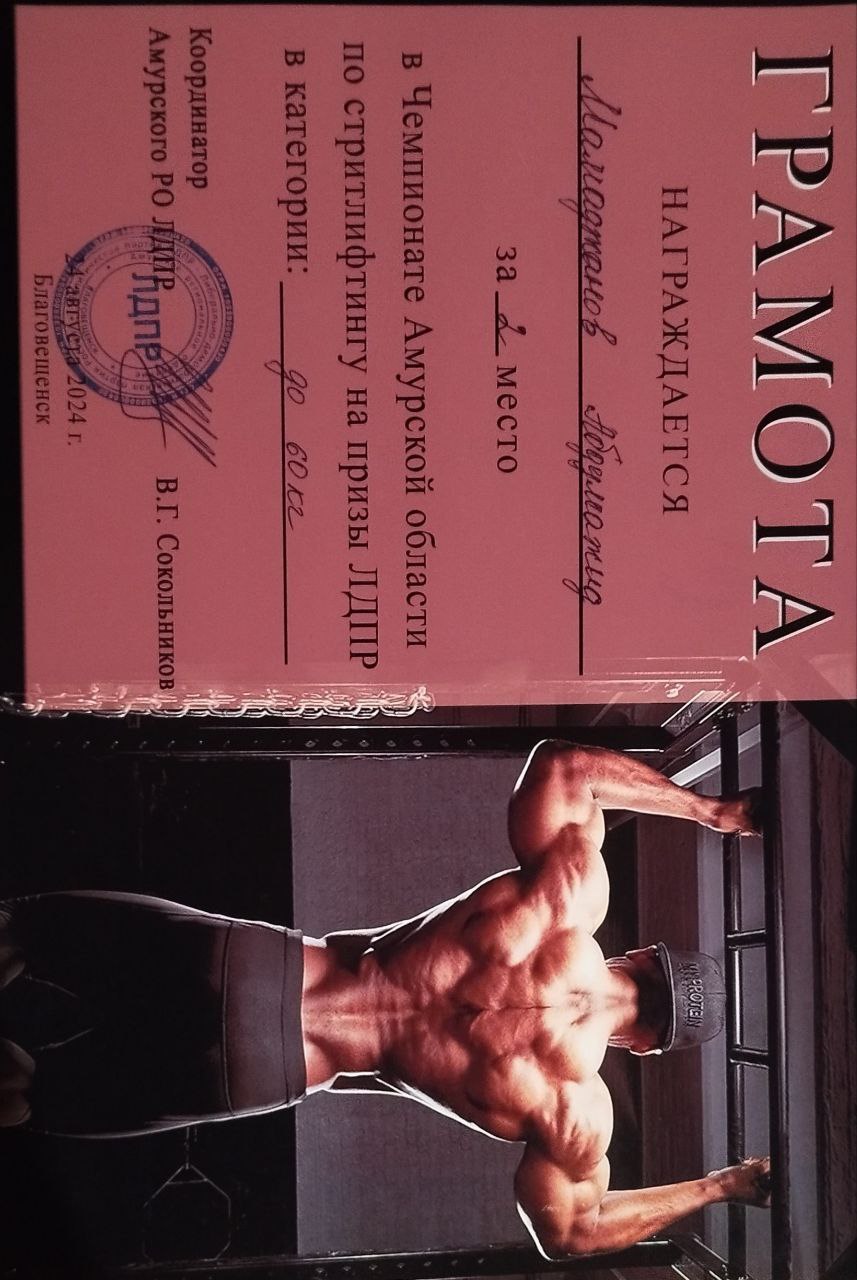 ГРАМОТА
НАГРАЖДАЕТСЯ
Мамаджанов Абдумажид
за 2 место
в Чемпионате Амурской области
по стритлифтингу на призы ЛДПР
в категории: до 60 кг
Координатор
Амурского РО ЛДПР В.Г. Сокольников
ЛДПР
24 августа 2024 г.
Благовещенск
PROTEIN